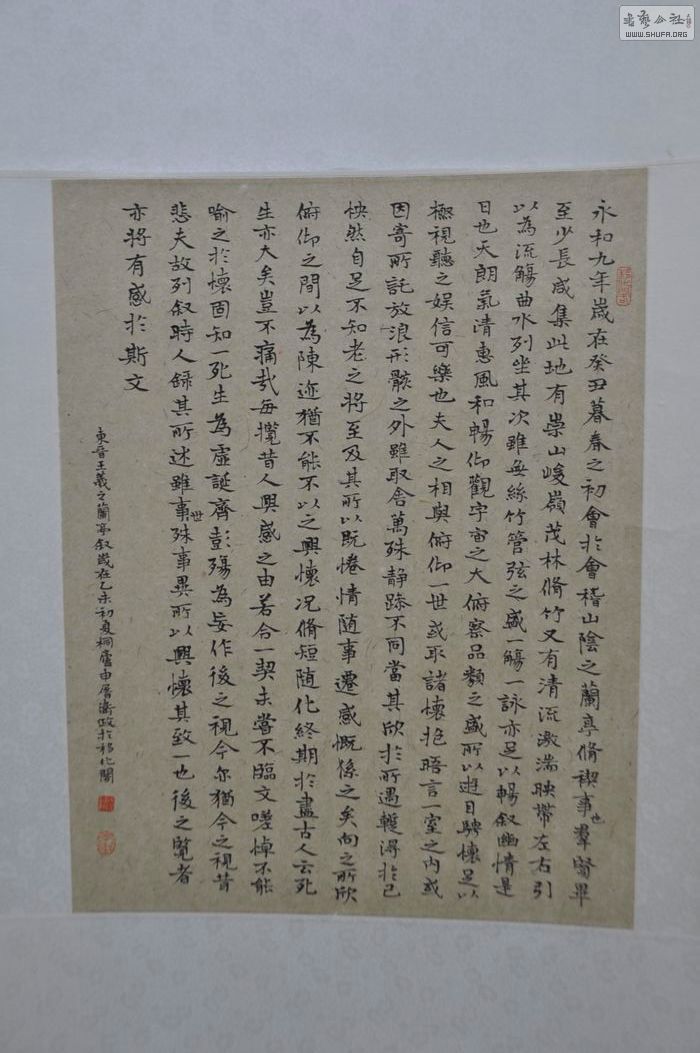 永和九年歲在癸丑暮春之初會於會稽山陰之蘭亭脩禊事也羣賢畢
至少長咸集此地有崇山峻嶺茂林脩竹又有清流激湍映帶左右引
以為流觴曲水列坐其次雖無絲竹管弦之盛一觴一詠亦足以暢叙幽情是
日也天朗氣清惠風和暢仰觀宇宙之大俯察品類之盛所以遊目騁懷足以
極視聽之娛信可樂也夫人之相與俯仰一世或取諸懷抱晤言一室之内或
因寄所託放浪形骸之外雖取舍萬殊静躁不同當其欣於所遇蹔得於己
怏然自足不知老之將至及其所以既惓情隨事遷感慨係之矣向之所欣
俯仰之間以為陳迹猶不能不以之興懷况脩短隨化終期於盡古人云死
生亦大矣豈不痛哉每攬昔人興感之由若合一契未嘗不臨文嗟悼不能
喻之於懷固知一死生為虛誕齊彭殤為妄作後之視今尔猶今之視昔
悲夫故列叙時人録其所述雖事世殊事異所以興懷其致一也後之覽者
亦將有感於斯文
東晉王羲之蘭亭叙歲在乙未初夏桐廬申屠濤政於移化閣
書藝公社
WWW.SHUFA.ORG